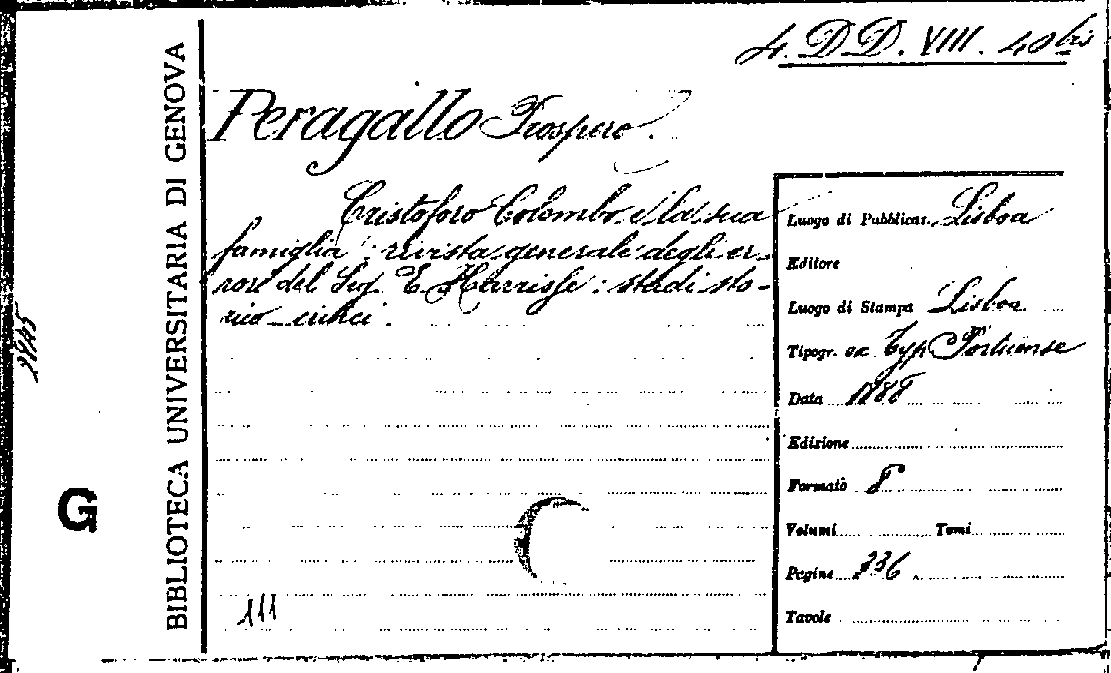 4. D D. VIII. 40 bis
Peragallo Prospero.
Cristoforo Colombo e la sua
famiglia: rivista generale degli er-
rori del Sig. E. Harrisse: studi sto-
rico-critici.
Luogo di Pubblicaz. Lisboa
Editore
Luogo di Stampa Lisboa
Tipogr. ex Typ Portuense
Data 1888
Edizione
Formato 8
Volumi Tomi
Pagine 336
Tavole
BIBLIOTECA UNIVERSITARIA DI GENOVA
G
111